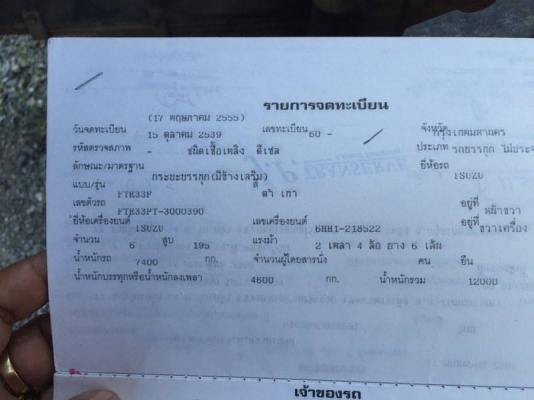 รายการจดทะเบียน
(17 พฤษภาคม 2555)
วันจดทะเบียน 15 ตุลาคม 2539 เลขทะเบียน 60 - จังหวัด กรุงเทพมหานคร
รหัสตรวจสภาพ - ชนิดเชื้อเพลิง ดีเซล ประเภท รถบรรทุก ไม่ประจำ
ลักษณะ/มาตรฐาน กระบะบรรทุก(มีข้างเสริม) ยี่ห้อรถ ISUZU
แบบ/รุ่น FTR33P สี ดำ เทา
เลขตัวรถ FTR33PT-3000390 อยู่ที่ หน้าขวา
ยี่ห้อเครื่องยนต์ ISUZU เลขเครื่องยนต์ 6HH1-218522 อยู่ที่ ขวาเครื่อง
จำนวน 6 สูบ 195 แรงม้า 2 เพลา 4 ล้อ ยาง 6 เส้น
น้ำหนักรถ 7400 กก. จำนวนผู้โดยสารนั่ง คน ยืน
น้ำหนักบรรทุกหรือน้ำหนักลงเพลา 4600 กก. น้ำหนักรวม 12000
เจ้าของรถ